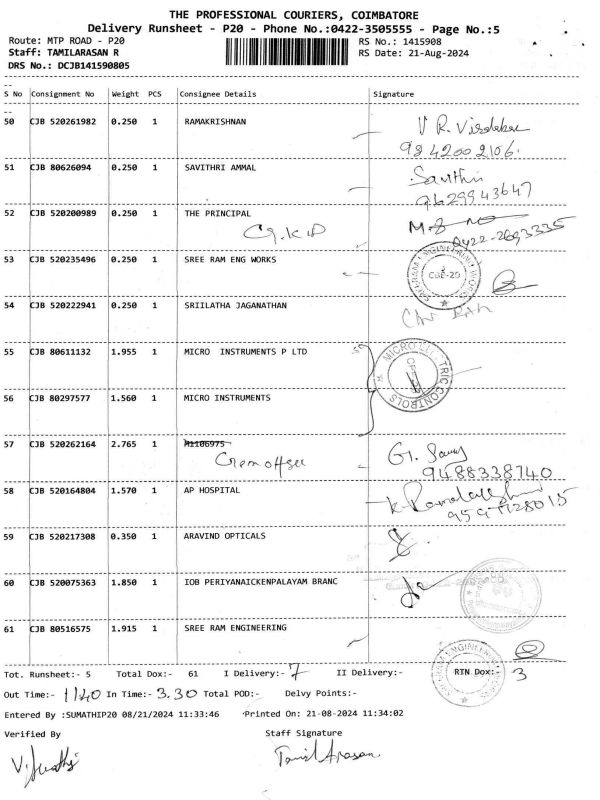 THE PROFESSIONAL COURIERS, COIMBATORE
Delivery Runsheet - P20 - Phone No.:0422-3505555 - Page No.:5
Route: MTP ROAD - P20 RS No.: 1415908
Staff: TAMILARASAN R RS Date: 21-Aug-2024
DRS No.: DCJB141590805
S No Consignment No Weight PCS Consignee Details Signature
50 CJB 520261982 0.250 1 RAMAKRISHNAN V R.
9842002106.
51 CJB 80626094 0.250 1 SAVITHRI AMMAL Savithri
9629943647
52 CJB 520200989 0.250 1 THE PRINCIPAL
0422-2693335
53 CJB 520235496 0.250 1 SREE RAM ENG WORKS SRI RAM ENGINEERING WORKS CBE-20
54 CJB 520222941 0.250 1 SRIILATHA JAGANATHAN
55 CJB 80611132 1.955 1 MICRO INSTRUMENTS P LTD MICRO ELECTRIC CONTROLS
56 CJB 80297577 1.560 1 MICRO INSTRUMENTS
57 CJB 520262164 2.765 1 M1106975
9488338740
58 CJB 520164804 1.570 1 AP HOSPITAL
59 CJB 520217308 0.350 1 ARAVIND OPTICALS
60 CJB 520075363 1.850 1 IOB PERIYANAICKENPALAYAM BRANC
61 CJB 80516575 1.915 1 SREE RAM ENGINEERING
Tot. Runsheet:- 5 Total Dox:- 61 I Delivery:- 7 II Delivery:- RTN Dox: 3
Out Time:- 1140 In Time:- 3.30 Total POD:- Delvy Points:-
Entered By :SUMATHIP20 08/21/2024 11:33:46 Printed On: 21-08-2024 11:34:02
Verified By Staff Signature
Tamil Arasan